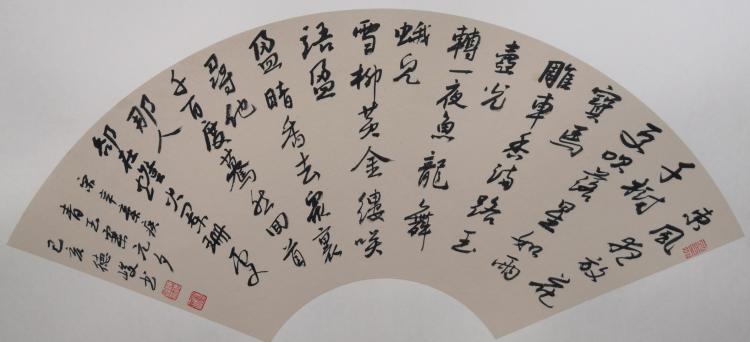 東風夜放花
千樹
更吹落星如雨
寶馬
雕車香滿路玉
壺光
轉一夜魚龍舞
蛾兒
雪柳黃金縷笑
語盈
盈暗香去衆裏
尋他
千百度驀然回首
那人
却在燈火闌珊處
宋辛棄疾
青玉案元夕
己亥德峻书